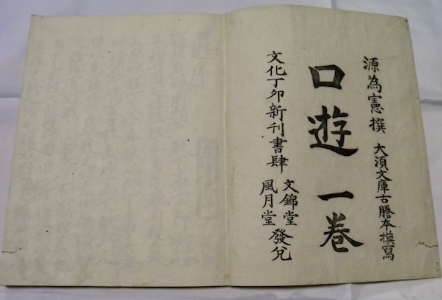 源為憲撰 大須文庫古謄本摸寫
口遊 一巻
文化丁卯新刊書肆 文錦堂
風月堂 發兌